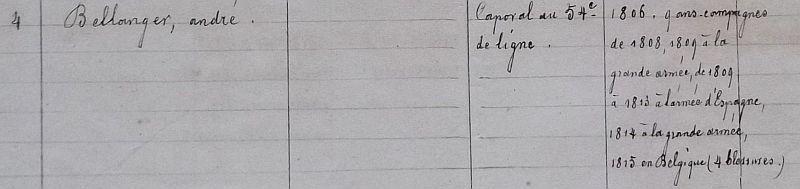 4 Bellanger, andré. Caporal au 54e 1806. 9 ans. campagnes
de ligne. de 1808, 1809 à la
grande armée, de 1809
à 1813 à l'armée d'Espagne,
1814 à la grande armée,
1815 en Belgique (4 blessures.)